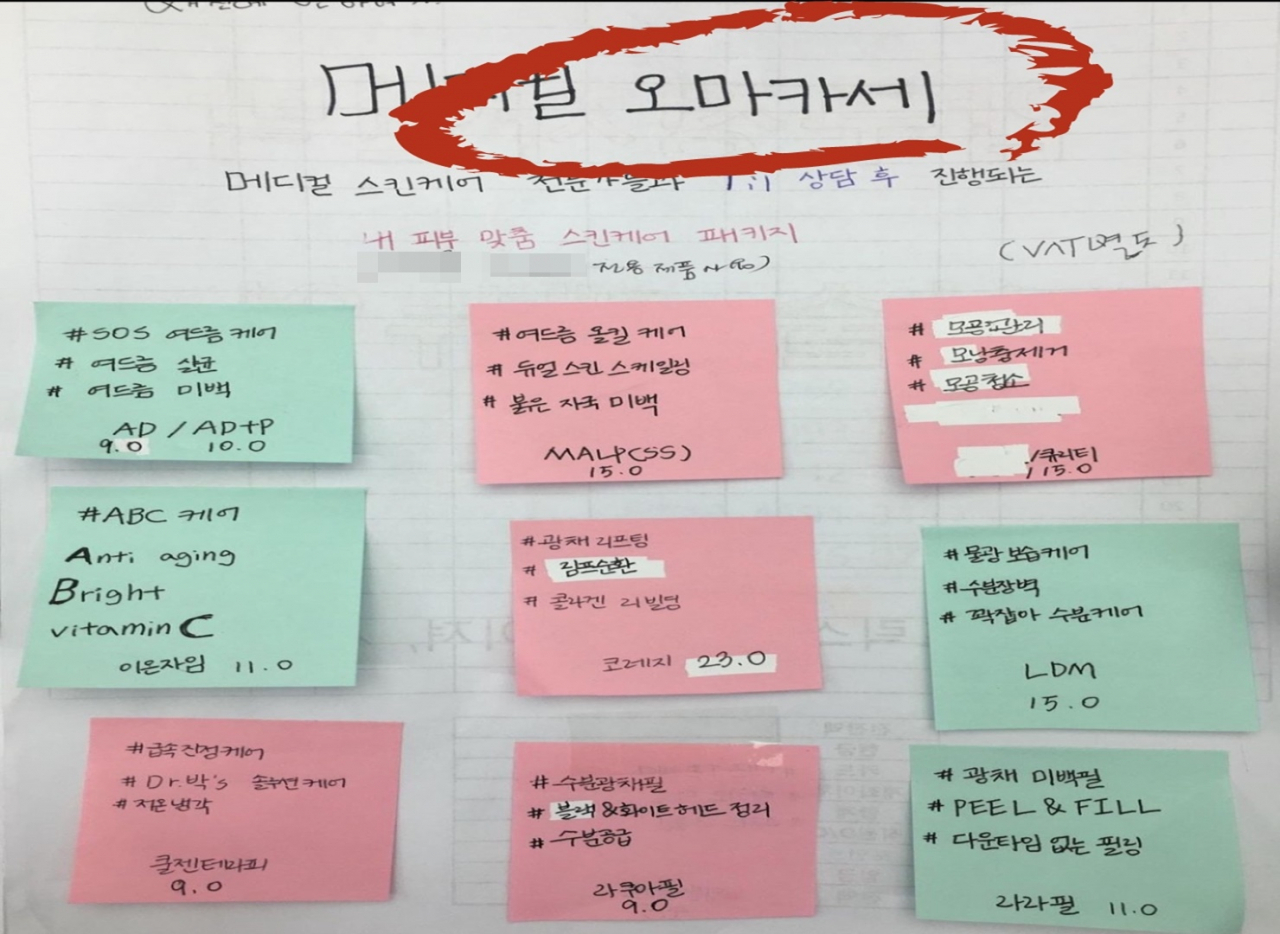 메디컬 오마카세
메디컬 스킨케어 전문가들과 1:1 상담 후 진행되는
내 피부 맞춤 스킨케어 패키지
(VAT별도)
전용 제품
#SOS 여드름 케어
# 여드름 살균
# 여드름 미백
AD / AD+P
9.0 10.0
#여드름 올킬 케어
# 듀얼 스킨 스케일링
# 붉은 자국 미백
MALP(SS)
15.0
# 모공관리
# 모낭충제거
# 모공청소
/큐리티
15.0
#ABC 케어
Anti aging
Bright
vitamin C
이온자임 11.0
#광채 리프팅
# 림프순환
# 콜라겐 리빌딩
코레지 23.0
#물광 보습케어
#수분장벽
# 꽉잡아 수분케어
LDM
15.0
#급속진정케어
#Dr.박's 솔루션케어
#저온냉각
쿨젠테라피
9.0
#수분광채필
#블랙&화이트헤드 정리
#수분공급
라쿠아필
9.0
# 광채 미백필
# PEEL & FILL
# 다운타임 없는 필링
라라필 11.0